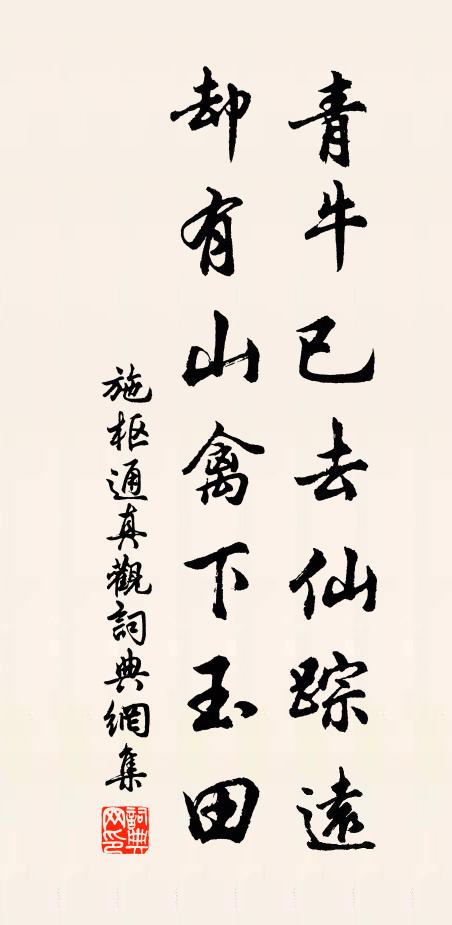 青牛已去仙踪遠
却有山禽下玉田
施枢通真觀詞典網集
詞典网印